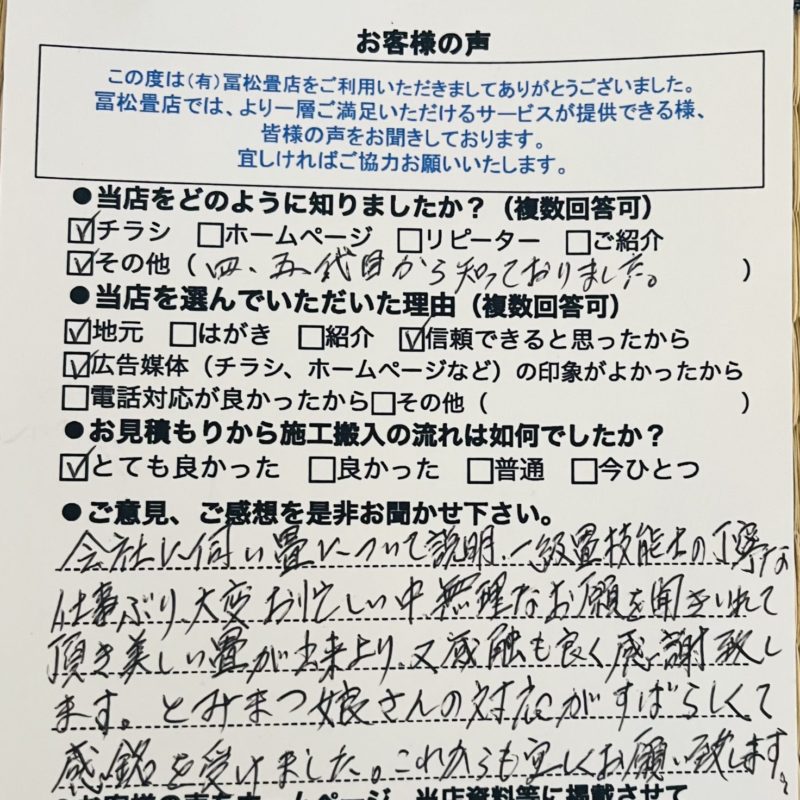 お客様の声
この度は(有)冨松畳店をご利用いただきましてありがとうございました。
冨松畳店では、より一層ご満足いただけるサービスが提供できる様、
皆様の声をお聞きしております。
宜しければご協力お願いいたします。
●当店をどのように知りましたか？（複数回答可）
☑チラシ □ホームページ □リピーター □ご紹介
☑その他（四、五代目から知っておりました。）
●当店を選んでいただいた理由（複数回答可）
☑地元 □はがき □紹介 ☑信頼できると思ったから
☑広告媒体（チラシ、ホームページなど）の印象がよかったから
□電話対応が良かったから□その他（ ）
●お見積もりから施工搬入の流れは如何でしたか？
☑とても良かった □良かった □普通 □今ひとつ
●ご意見、ご感想を是非お聞かせ下さい。
会社に伺い畳について説明、一級畳技能士の丁寧な
仕事ぶり、大変お忙しい中、無理なお願を聞きいれて
頂き美しい畳が出来上り、又感触も良く感謝致し
ます。とみまつ娘さんの対応がすばらしくて
感銘を受けました。これからも宜しくお願い致します。
●お客様の声をホームページ、当店資料等に掲載させて